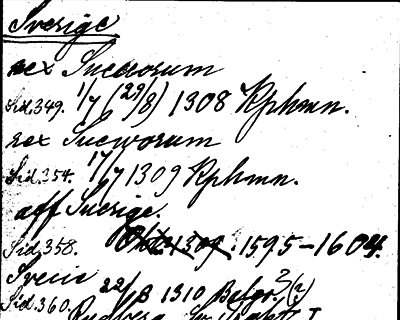 Sverige
rex Sueciorum
Sid. 349. 1/7 (29/8) 1308 Kphmn.
rex Sueworum
Sid. 354. 17/7 1309 Kphmn.
aff Suerige.
Sid. 358. 1595-1604.
Svecie
Sid. 360. 22/8 1310 Belgr. 2(?)
Rydberg